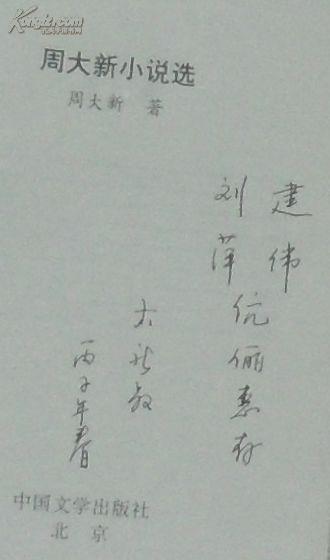 Kongfz.com
周大新小说选
周大新 著
建伟
刘萍伉俪惠存
大新敬
丙子年春
中国文学出版社
北京